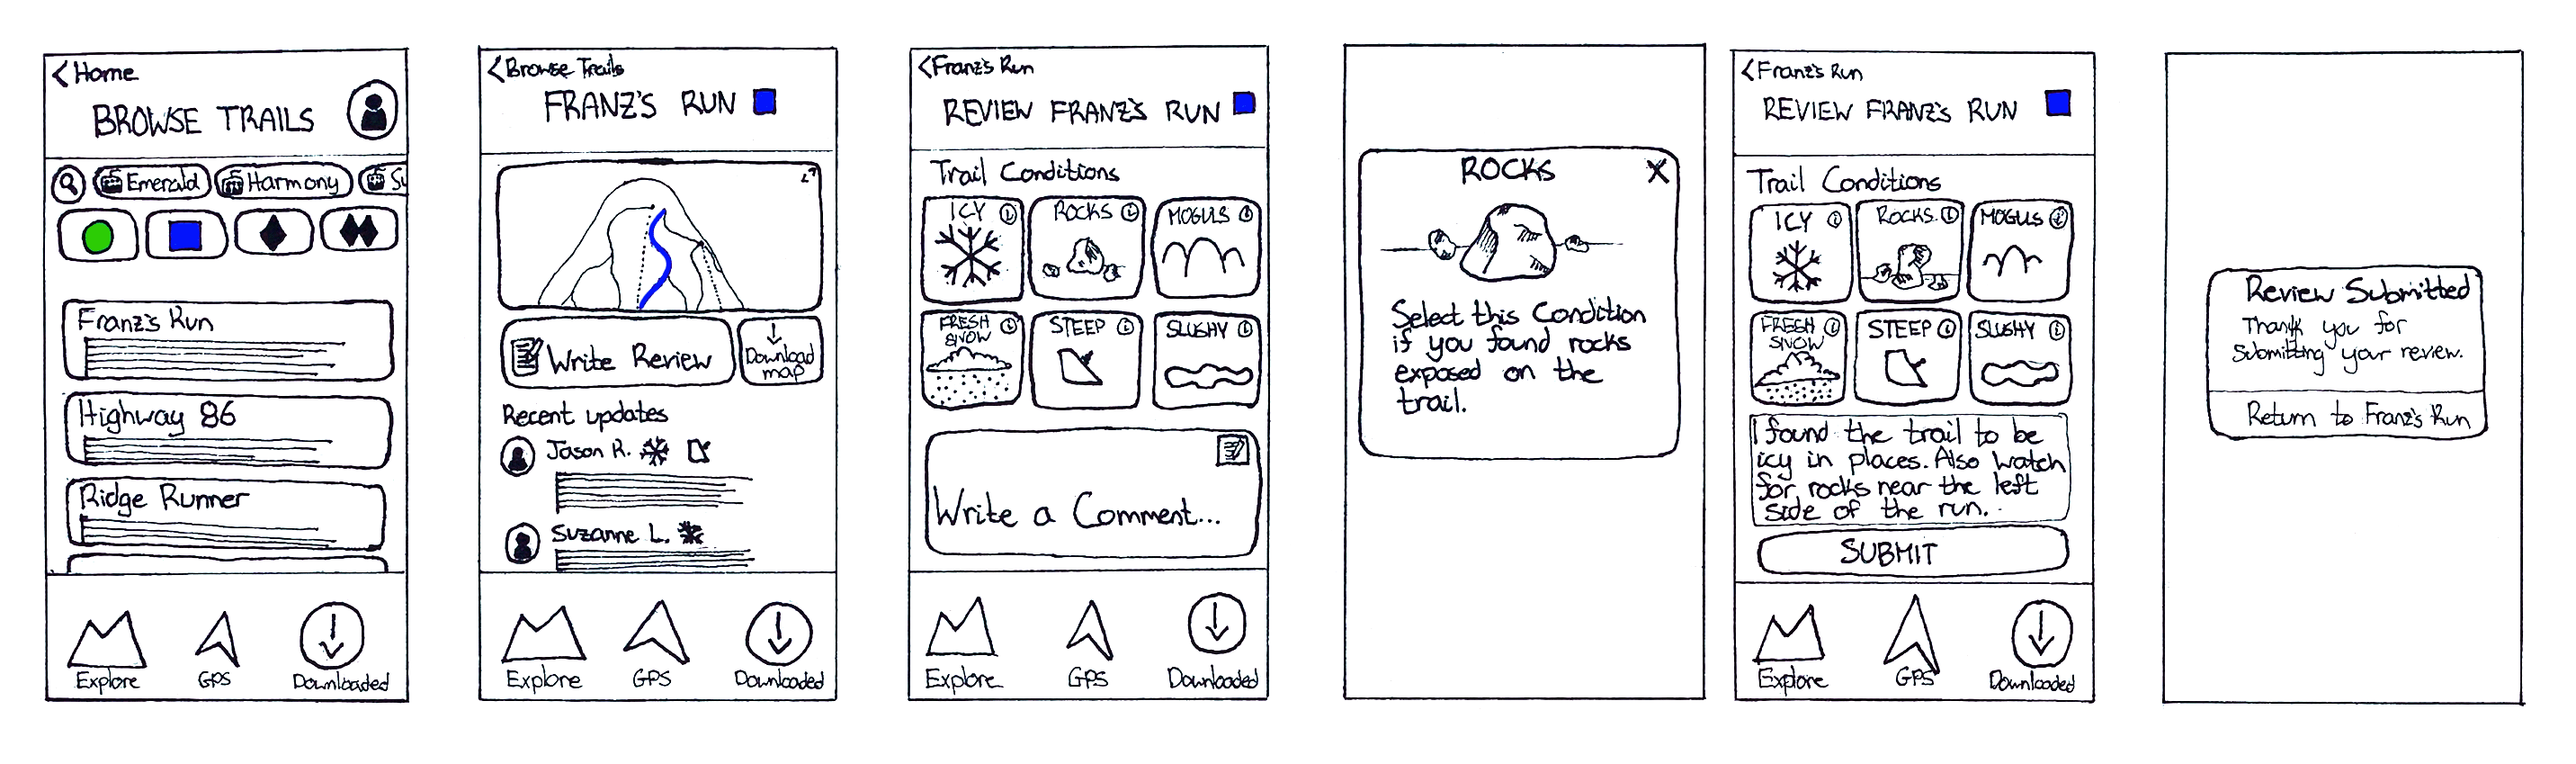 <Home
BROWSE TRAILS
Emerald
Harmony
Su
Franz's Run
Highway 86
Ridge Runner
Explore
GPS
Downloaded
<Browse Trails
FRANZ'S RUN
Write Review
Download
map
Recent updates
Jason R.
Suzanne L.
Explore
GPS
Downloaded
<Franz's Run
REVIEW FRANZ'S RUN
Trail Conditions
ICY i
ROCKS i
MOGULS i
FRESH i
SNOW
STEEP i
SLUSHY i
Write a Comment...
Explore
GPS
Downloaded
ROCKS X
Select this Condition
if you found rocks
exposed on the
trail.
<Franz's Run
REVIEW FRANZ'S RUN
Trail Conditions
ICY i
ROCKS i
MOGULS i
FRESH i
SNOW
STEEP i
SLUSHY i
I found the trail to be
icy in places. Also watch
for rocks near the left
side of the run.
SUBMIT
Explore
GPS
Downloaded
Review Submitted
Thank you for
Submitting your review.
Return to Franz's Run